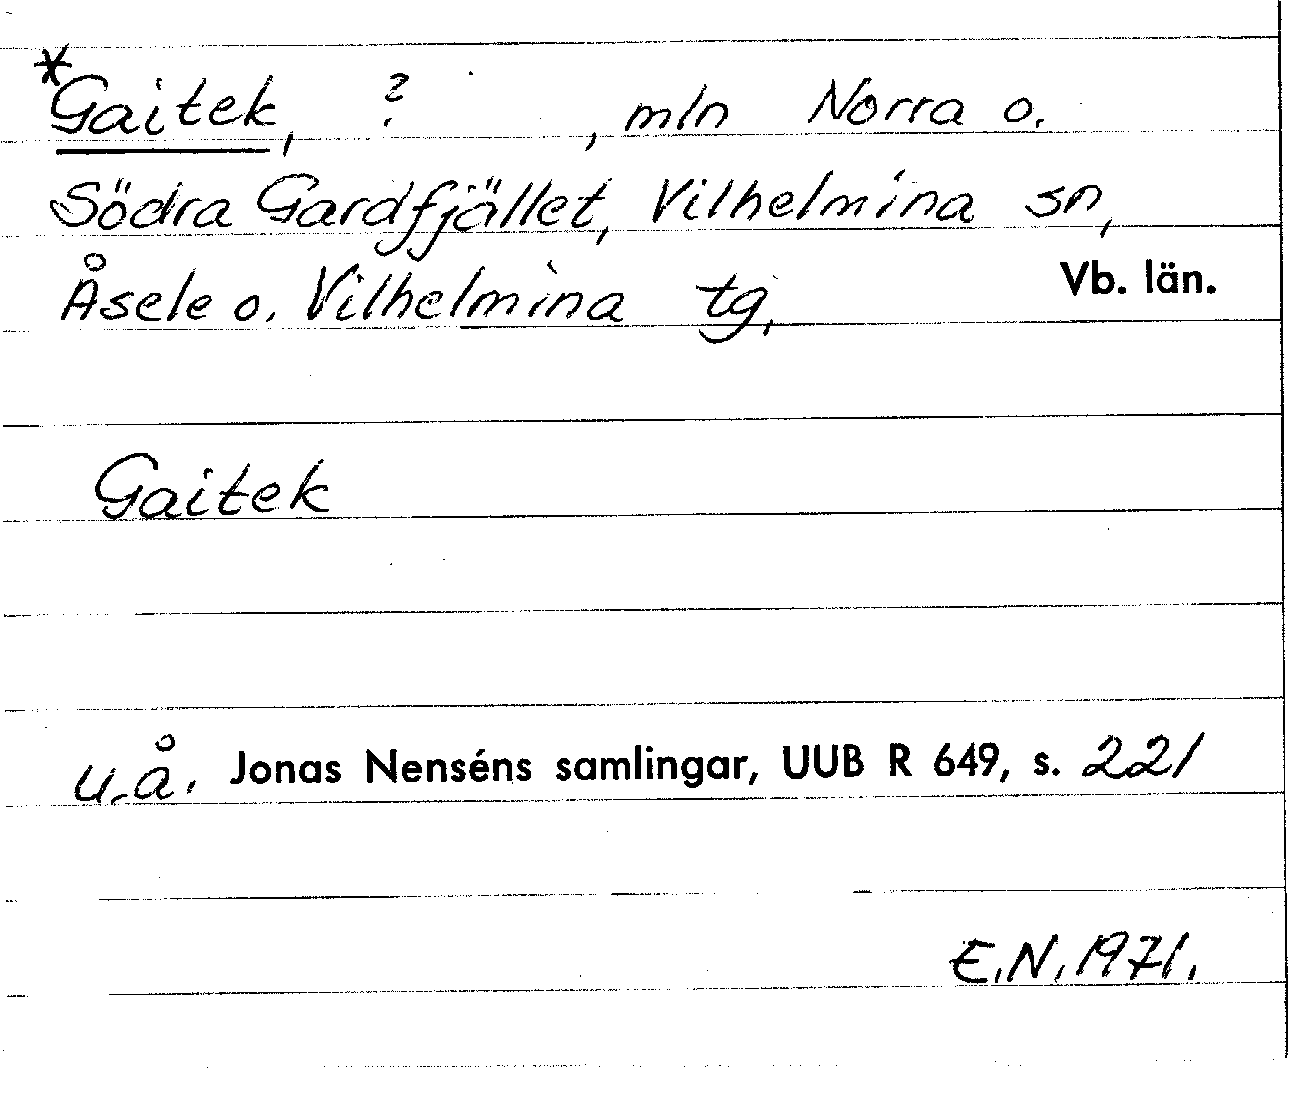 *Gaitek, ? , mln Norra o.
Södra Gardfjället, Vilhelmina sn,
Åsele o. Vilhelmina tg, Vb. län.
Gaitek
u.å. Jonas Nenséns samlingar, UUB R 649, s. 221
E.N. 1971.